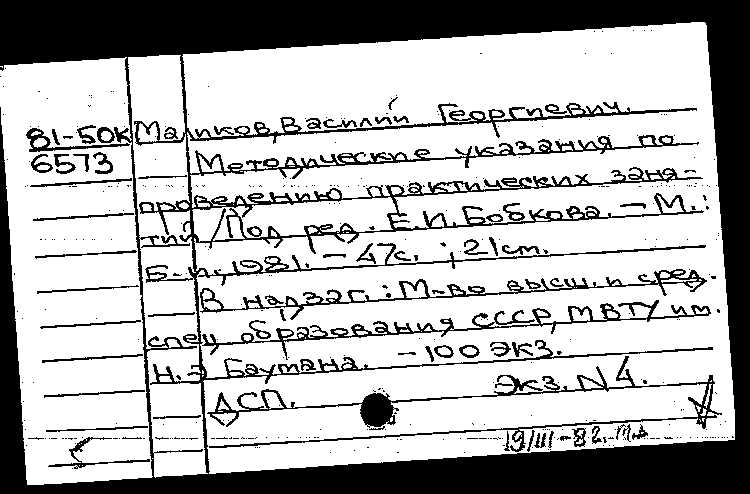 81-50К Маликов, Василий Георгиевич.
6573 Методические указания по
проведению практических заня-
тий / Под ред. Е.И. Бобкова. – М. :
Б. и., 1981. – 47с. ; 21см.
В надзаг. : М-во высш. и сред.
спец образования СССР, МВТУ им.
Н.Э Баумана. – 100 экз.
ДСП. Экз. N 4.
19/III-82.